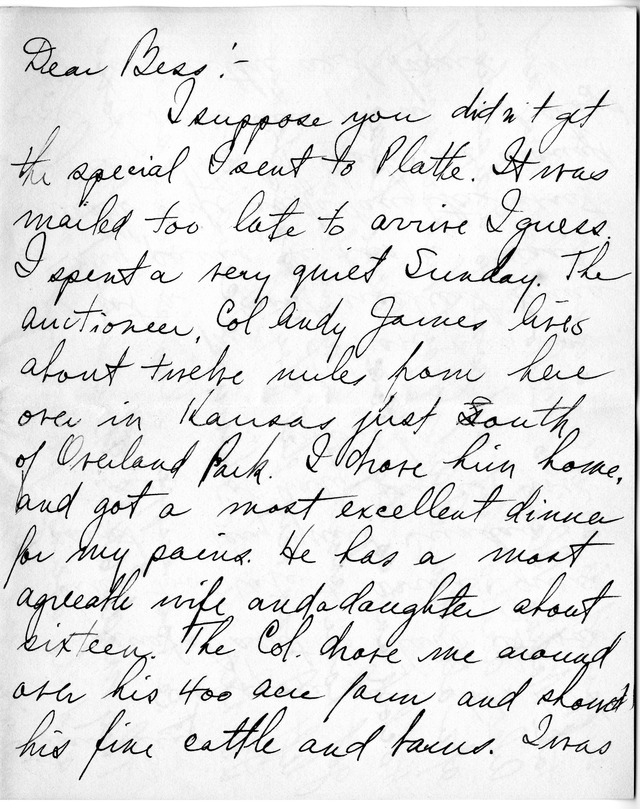 Dear Bess:-
I suppose you didn't get
the special I sent to Platte. It was
mailed too late to arrive I guess.
I spent a very quiet Sunday. The
auctioneer, Col Andy James lives
about twelve miles from here
over in Kansas just South
of Overland Park. I drove him home,
and got a most excellent dinner
for my pains. He has a most
agreeable wife and a daughter about
sixteen. The Col. drove me around
over his 400 acre farm and showed
his fine cattle and barns. I was